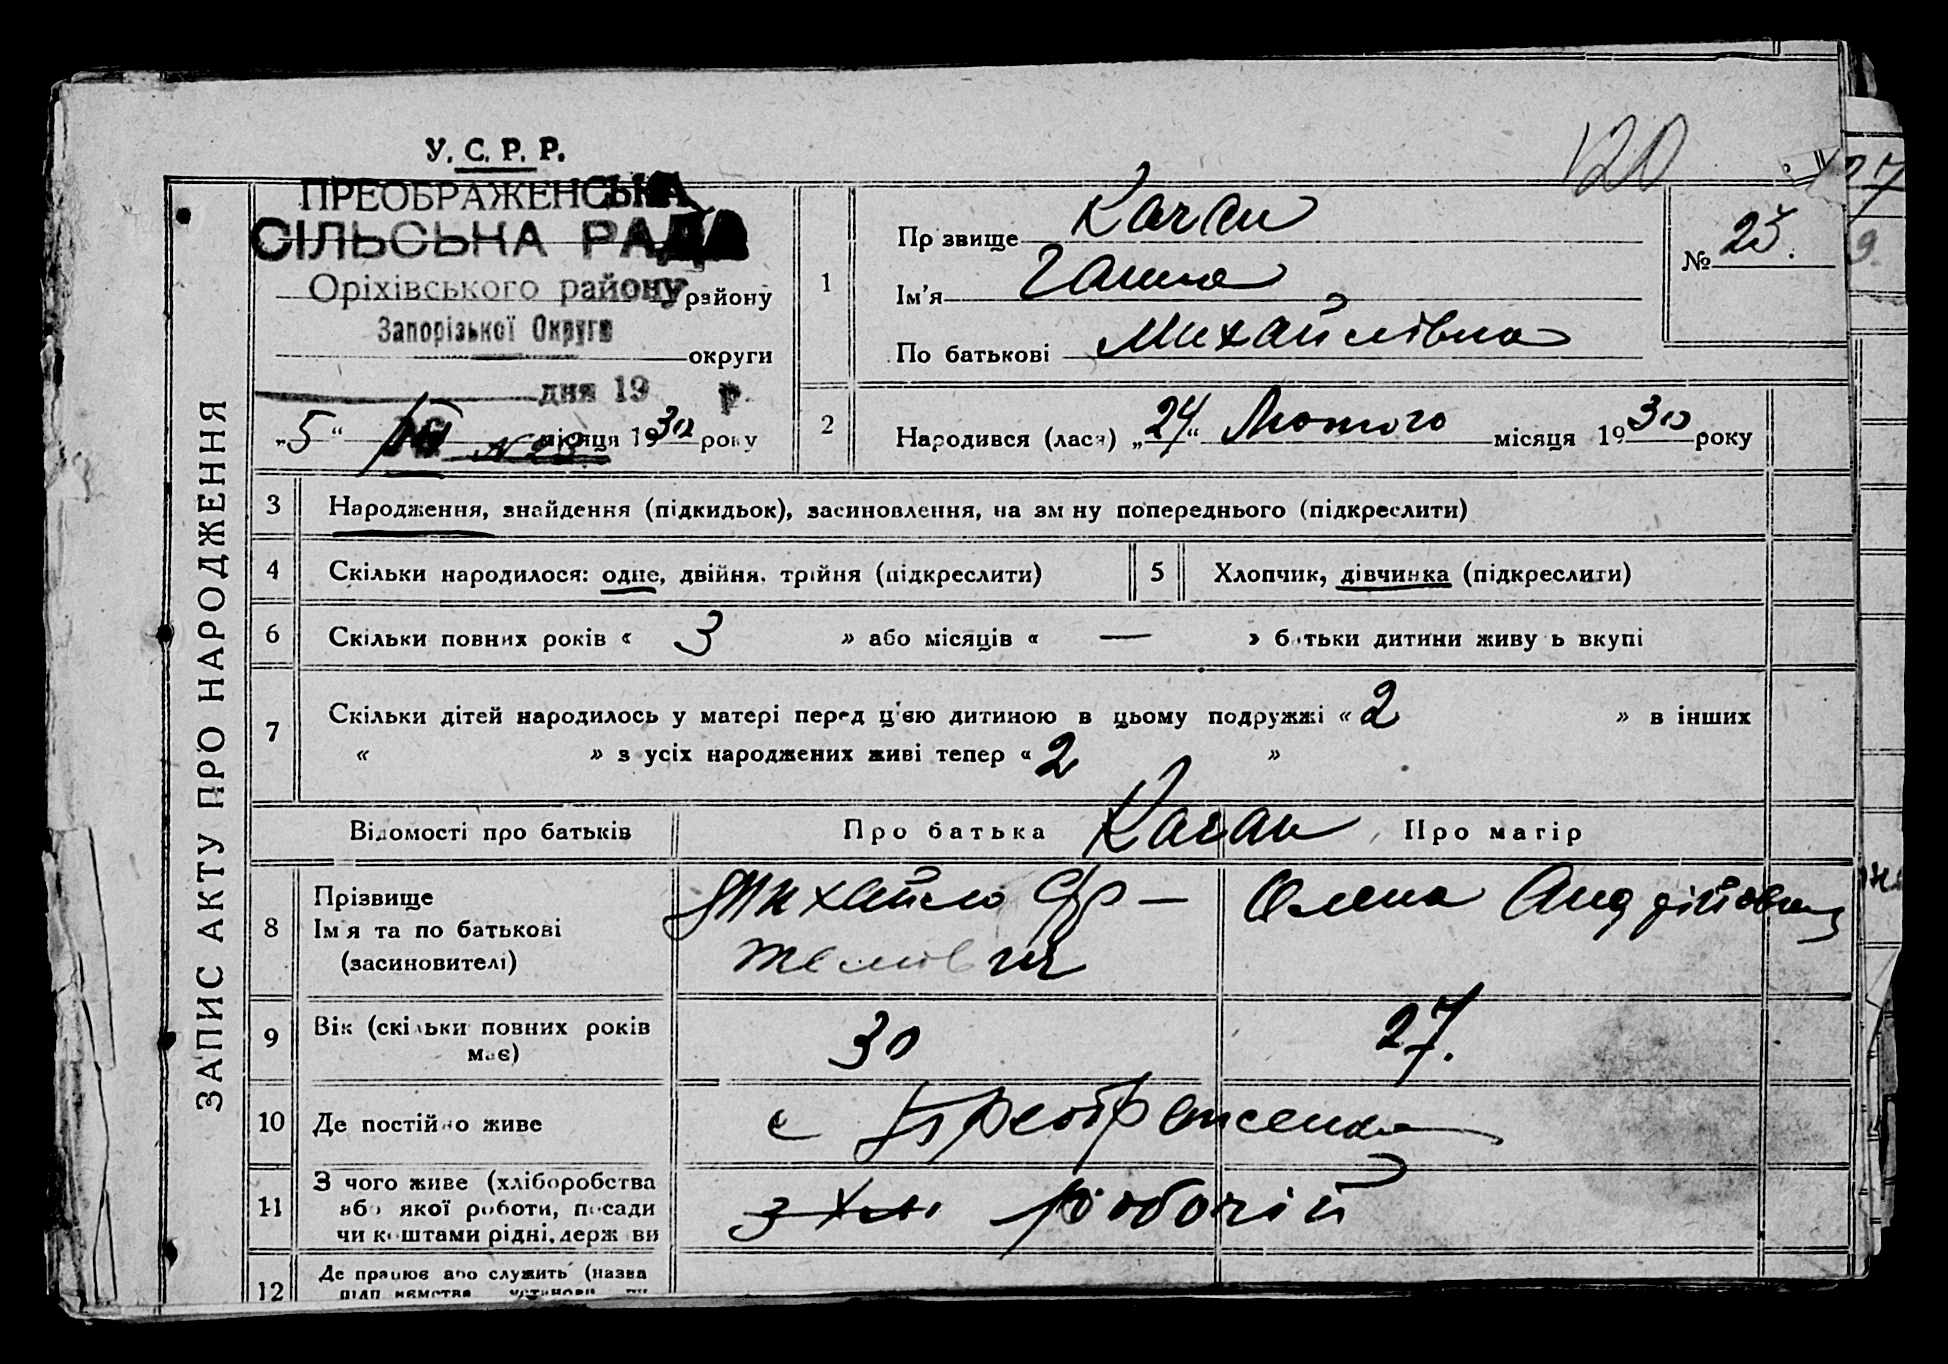 120
27
У. С. Р. Р.
ПРЕОБРАЖЕНСЬКА
СІЛЬСЬКА РАДА
Оріхівського району району
Запорізької Округи
округи
дня 19 р.
„5“ місяця 1930 року
N 23
ЗАПИС АКТУ ПРО НАРОДЖЕННЯ
1
Прізвище Качан
Ім'я Ганна
По батькові Михайлівна
№ 23.
9
2
Народився (лася) „24“ Лютого місяця 1930 року
3 Народження, знайдення (підкидьок), засиновлення, на зміну попереднього (підкреслити)
4 Скільки народилося: одне, двійня, трійня (підкреслити)
5 Хлопчик, дівчинка (підкреслити)
6 Скільки повних років « 3 » або місяців « — » батьки дитини живуть вкупі
7 Скільки дітей народилось у матері перед цією дитиною в цьому подружжі « 2 » в інших
« » з усіх народжених живі тепер « 2 »
Відомості про батьків Про батька Качан Про матір
8 Прізвище
Ім'я та по батькові
(засиновителі)
Михайло
Олена Андрійовна
9 Вік (скільки повних років
має)
30
27.
10 Де постійно живе
с Преображенка
11 З чого живе (хліборобства
або якої роботи, посади
чи коштами рідні, держави
робочій
12 Де працює або служить (назва
підприємства, установи